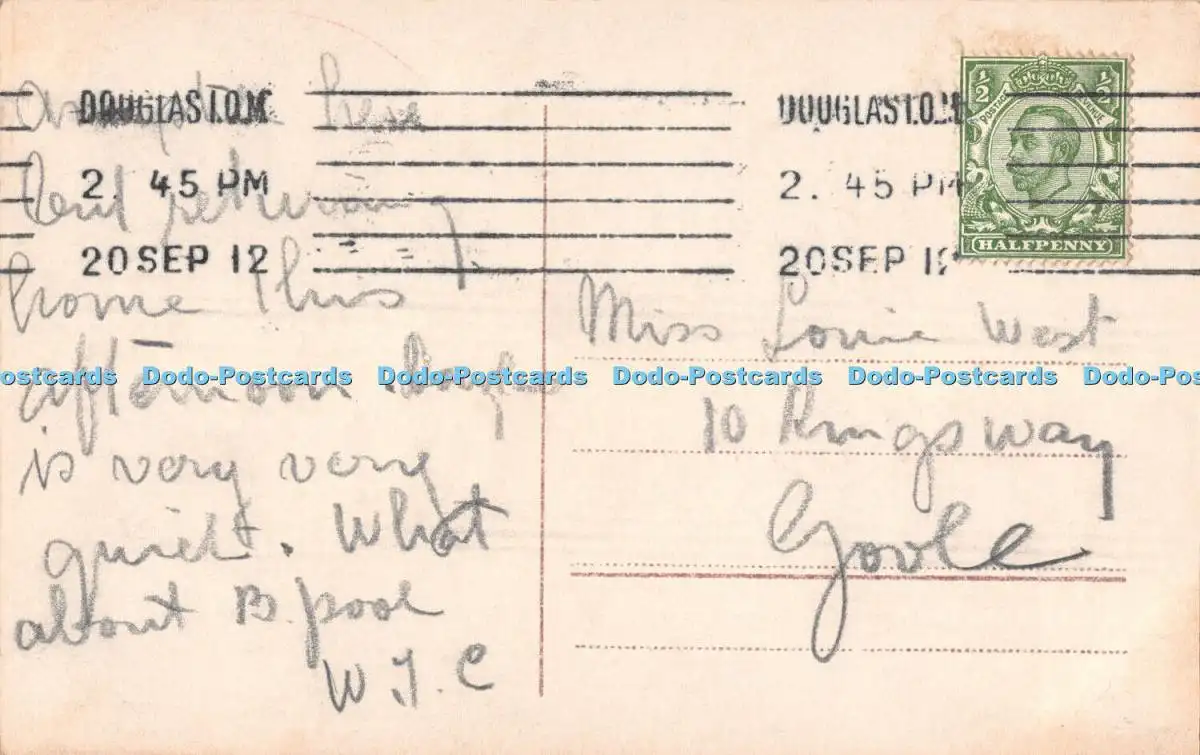 DOUGLAS I.O.M
2 45 PM
20 SEP 12
DOUGLAS I.O.M
2. 45 PM
20 SEP 12
1/2 1/2
POSTAGE REVENUE
HALFPENNY
here
but returning
home this
afternoon
is very very
quiet. What
about B. pool
W. J. C
Miss Louie West
10 Kingsway
Goole
ostcards Dodo-Postcards Dodo-Postcards Dodo-Postcards Dodo-Postcards Dodo-Pos